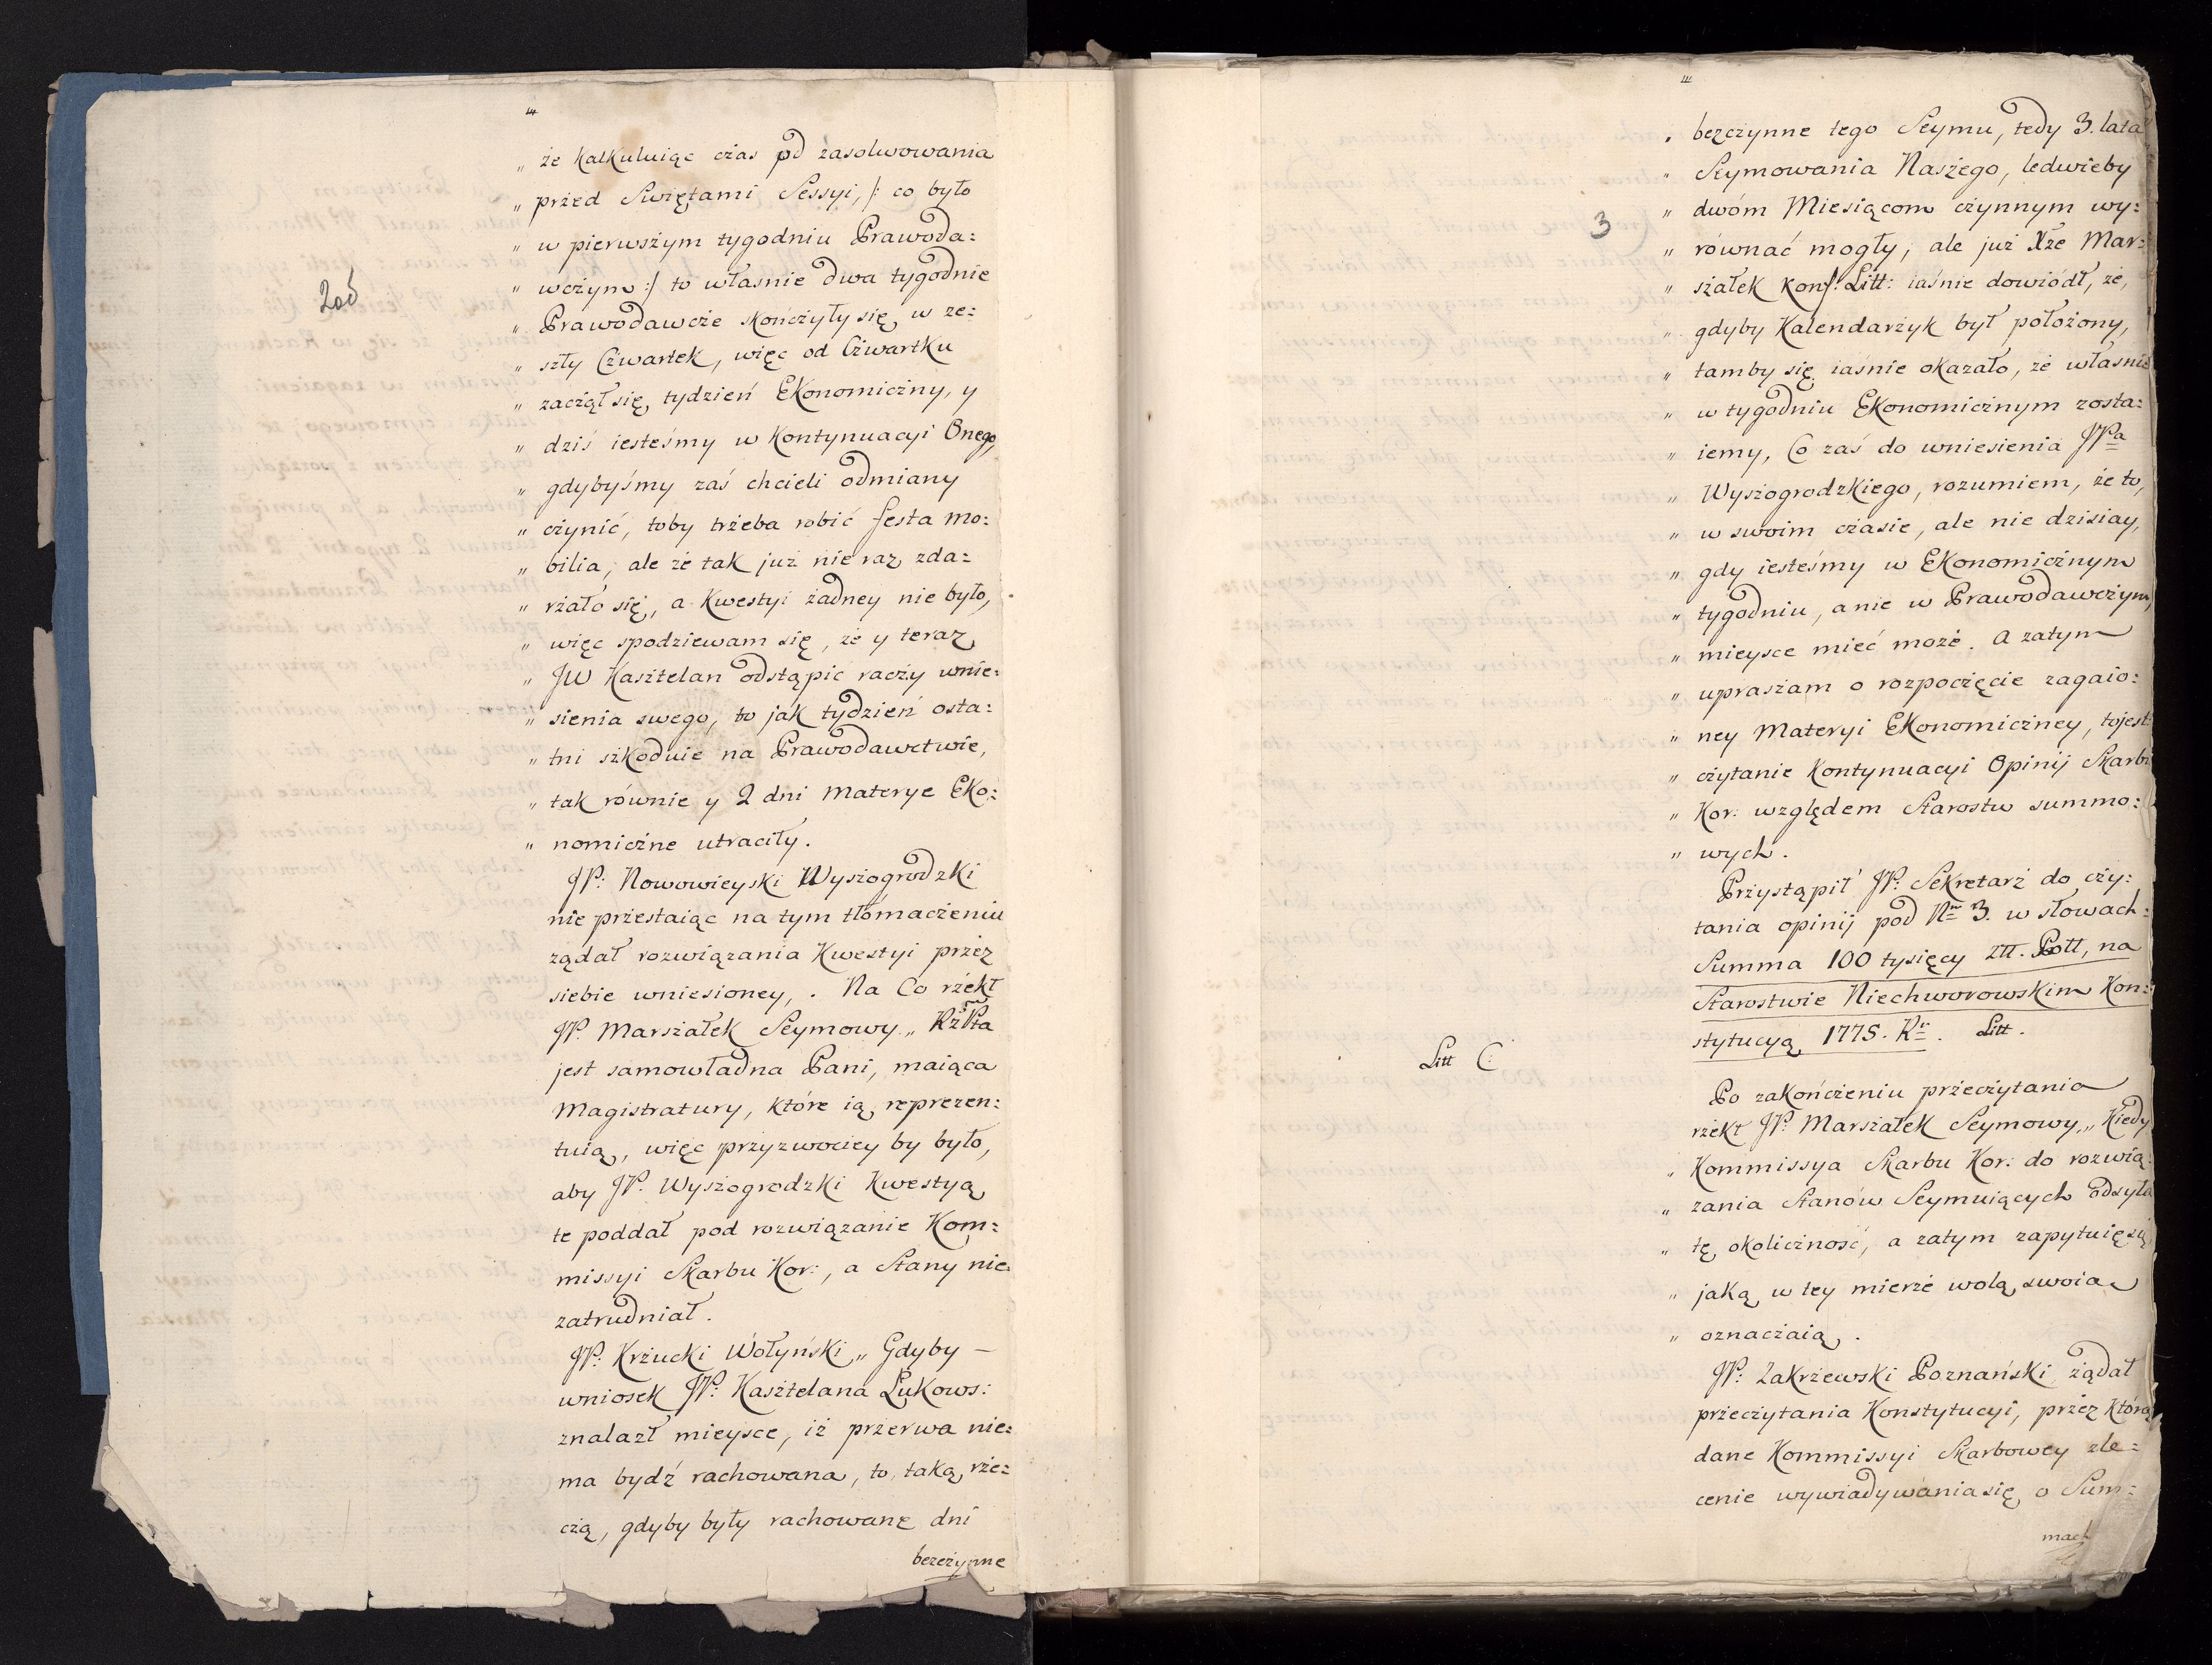 206
„ że kalkuluiąc czas od zasolwowania
„ przed Swiętami Sessyi, /: co było
„ w pierwszym tygodniu Prawoda:
„ wczym :/ to własnie dwa tygodnie
„ Prawodawcze skończyły się, w ze:
„ szły Czwartek, więc od Czwartku
„ zaczął się, tydzień Ekonomiczny, y
„ dziś iesteśmy w Kontynuacyi Onego,
„ gdybyśmy zaś chcieli odmiany
„ czynić, toby trzeba robić festa mo:
„ bilia, ale że tak już nie raz zda:
„ rzało się, a Kwestyi żadney nie było,
„ więc spodziewam się, że y teraz
„ JW Kasztelan odstąpic raczy wnie:
„ sienia swego, to jak tydzień osta:
„ tni szkoduie na Prawodawctwie,
„ tak równie y 2 dni Materye Eko:
„ nomiczne utraciły.
JP: Nowowieyski Wyszogrodzki
nie przestaiąc na tym tłómaczeniu
ządał rozwiązania Kwestyi przez
siebie wniesioney, . Na Co rzekł
JP. Marszałek Seymowy „ Rzpta
jest samowładna Pani, maiąca
Magistratury, które ią, reprezen:
tuią, więc przyzwoiciey by było,
aby JP. Wyszogrodzki Kwestyą
te poddał pod rozwiązanie Kom:
missyi Skarbu Kor:, a Stany nie
zatrudniał.
JP: Krzucki Wołyński „ Gdyby —
wniosek JP: Kasztelana Łukows:
znalazł mieysce, iż przerwa nie:
ma bydź rachowana, to, taką, rze:
czą, gdyby były rachowane dni
bezczynne
3
„ bezczynne tego Seymu, tedy 3. lata
„ Seymowania Naszego, ledwieby
„ dwóm Miesiącom czynnym wy:
„ równać mogły, ale już Xże Mar:
„ szałek Konf: Litt: iaśnie dowiódł, że,
„ gdyby Kalendarzyk był położony,
„ tamby się, iaśnie okazało, że własnie
„ w tygodniu Ekonomicznym zosta:
„ iemy, Co zaś do wniesienia JPa
„ Wyszogrodzkiego, rozumiem, że to,
„ w swoim czasie, ale nie dzisiay,
„ gdy iesteśmy w Ekonomicznym
„ tygodniu, a nie w Prawodawczym,
„ mieysce mieć może. A zatym
„ upraszam o rozpoczęcie zagaio:
„ ney Materyi Ekonomiczney, tojest:
„ czytanie Kontynuacyi Opinij Skarbu
„ Kor: względem Starostw summo:
„ wych.
Przystąpił JP: Sekretarz do czy:
tania opinij pod Nm 3. w słowach:
Summa 100 tysięcy Złł. Poll, na
Starostwie Niechworowskim Kon:
stytucyą 1775. Rn. Litt.
Litt C:
Po zakończeniu przeczytania
rzekł JP: Marszałek Seymowy „ Kiedy
„ Kommissya Skarbu Kor: do rozwią:
„ zania Stanów Seymuiących odsyła
„ tę, okoliczność, a zatym zapytuię się,
„ jaką w tey mierze wolą, swoią
„ oznaczaią.
JP: Zakrzewski Poznański, żądał
przeczytania Konstytucyi, przez którą
dane Kommissyi Skarbowey zle:
cenie wywiadywania się, o Sum:
mach